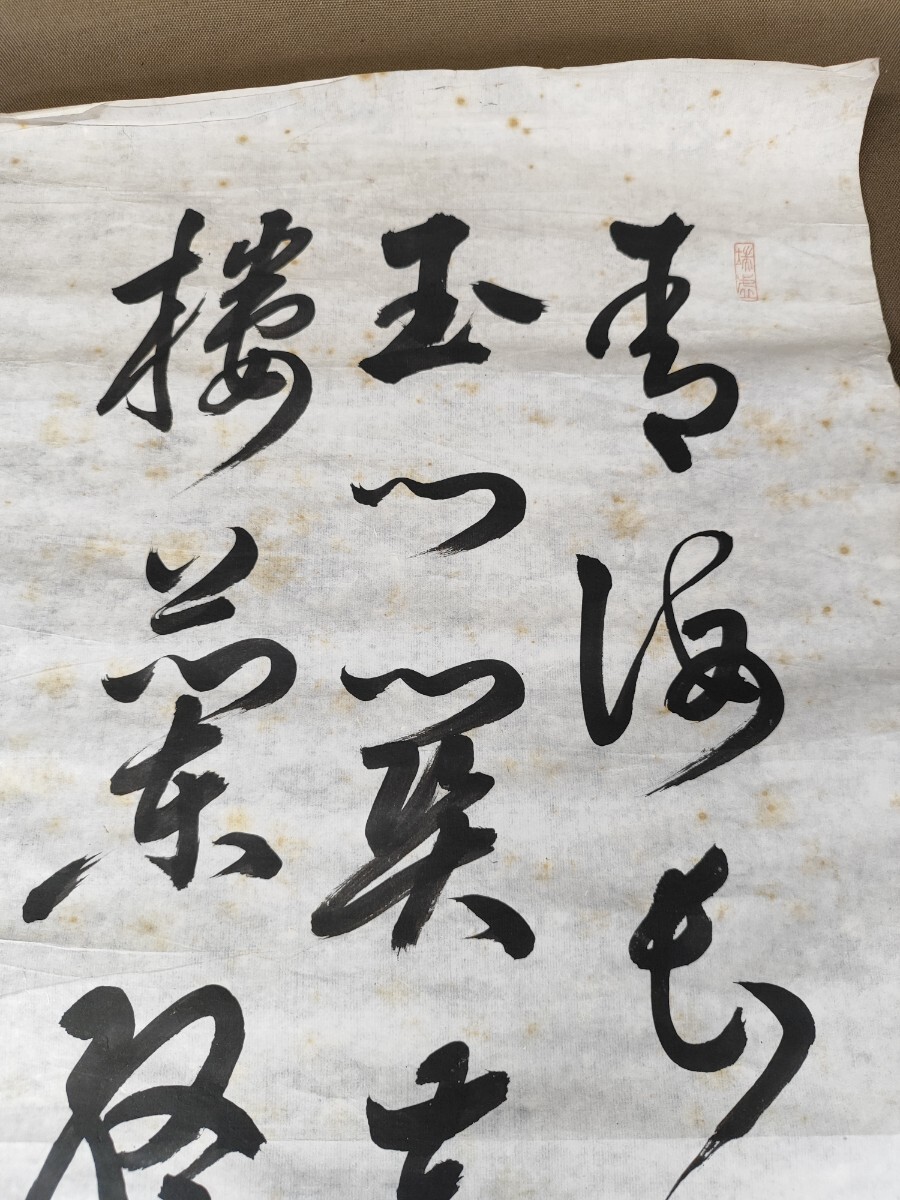 青海長
玉門關
樓蘭終